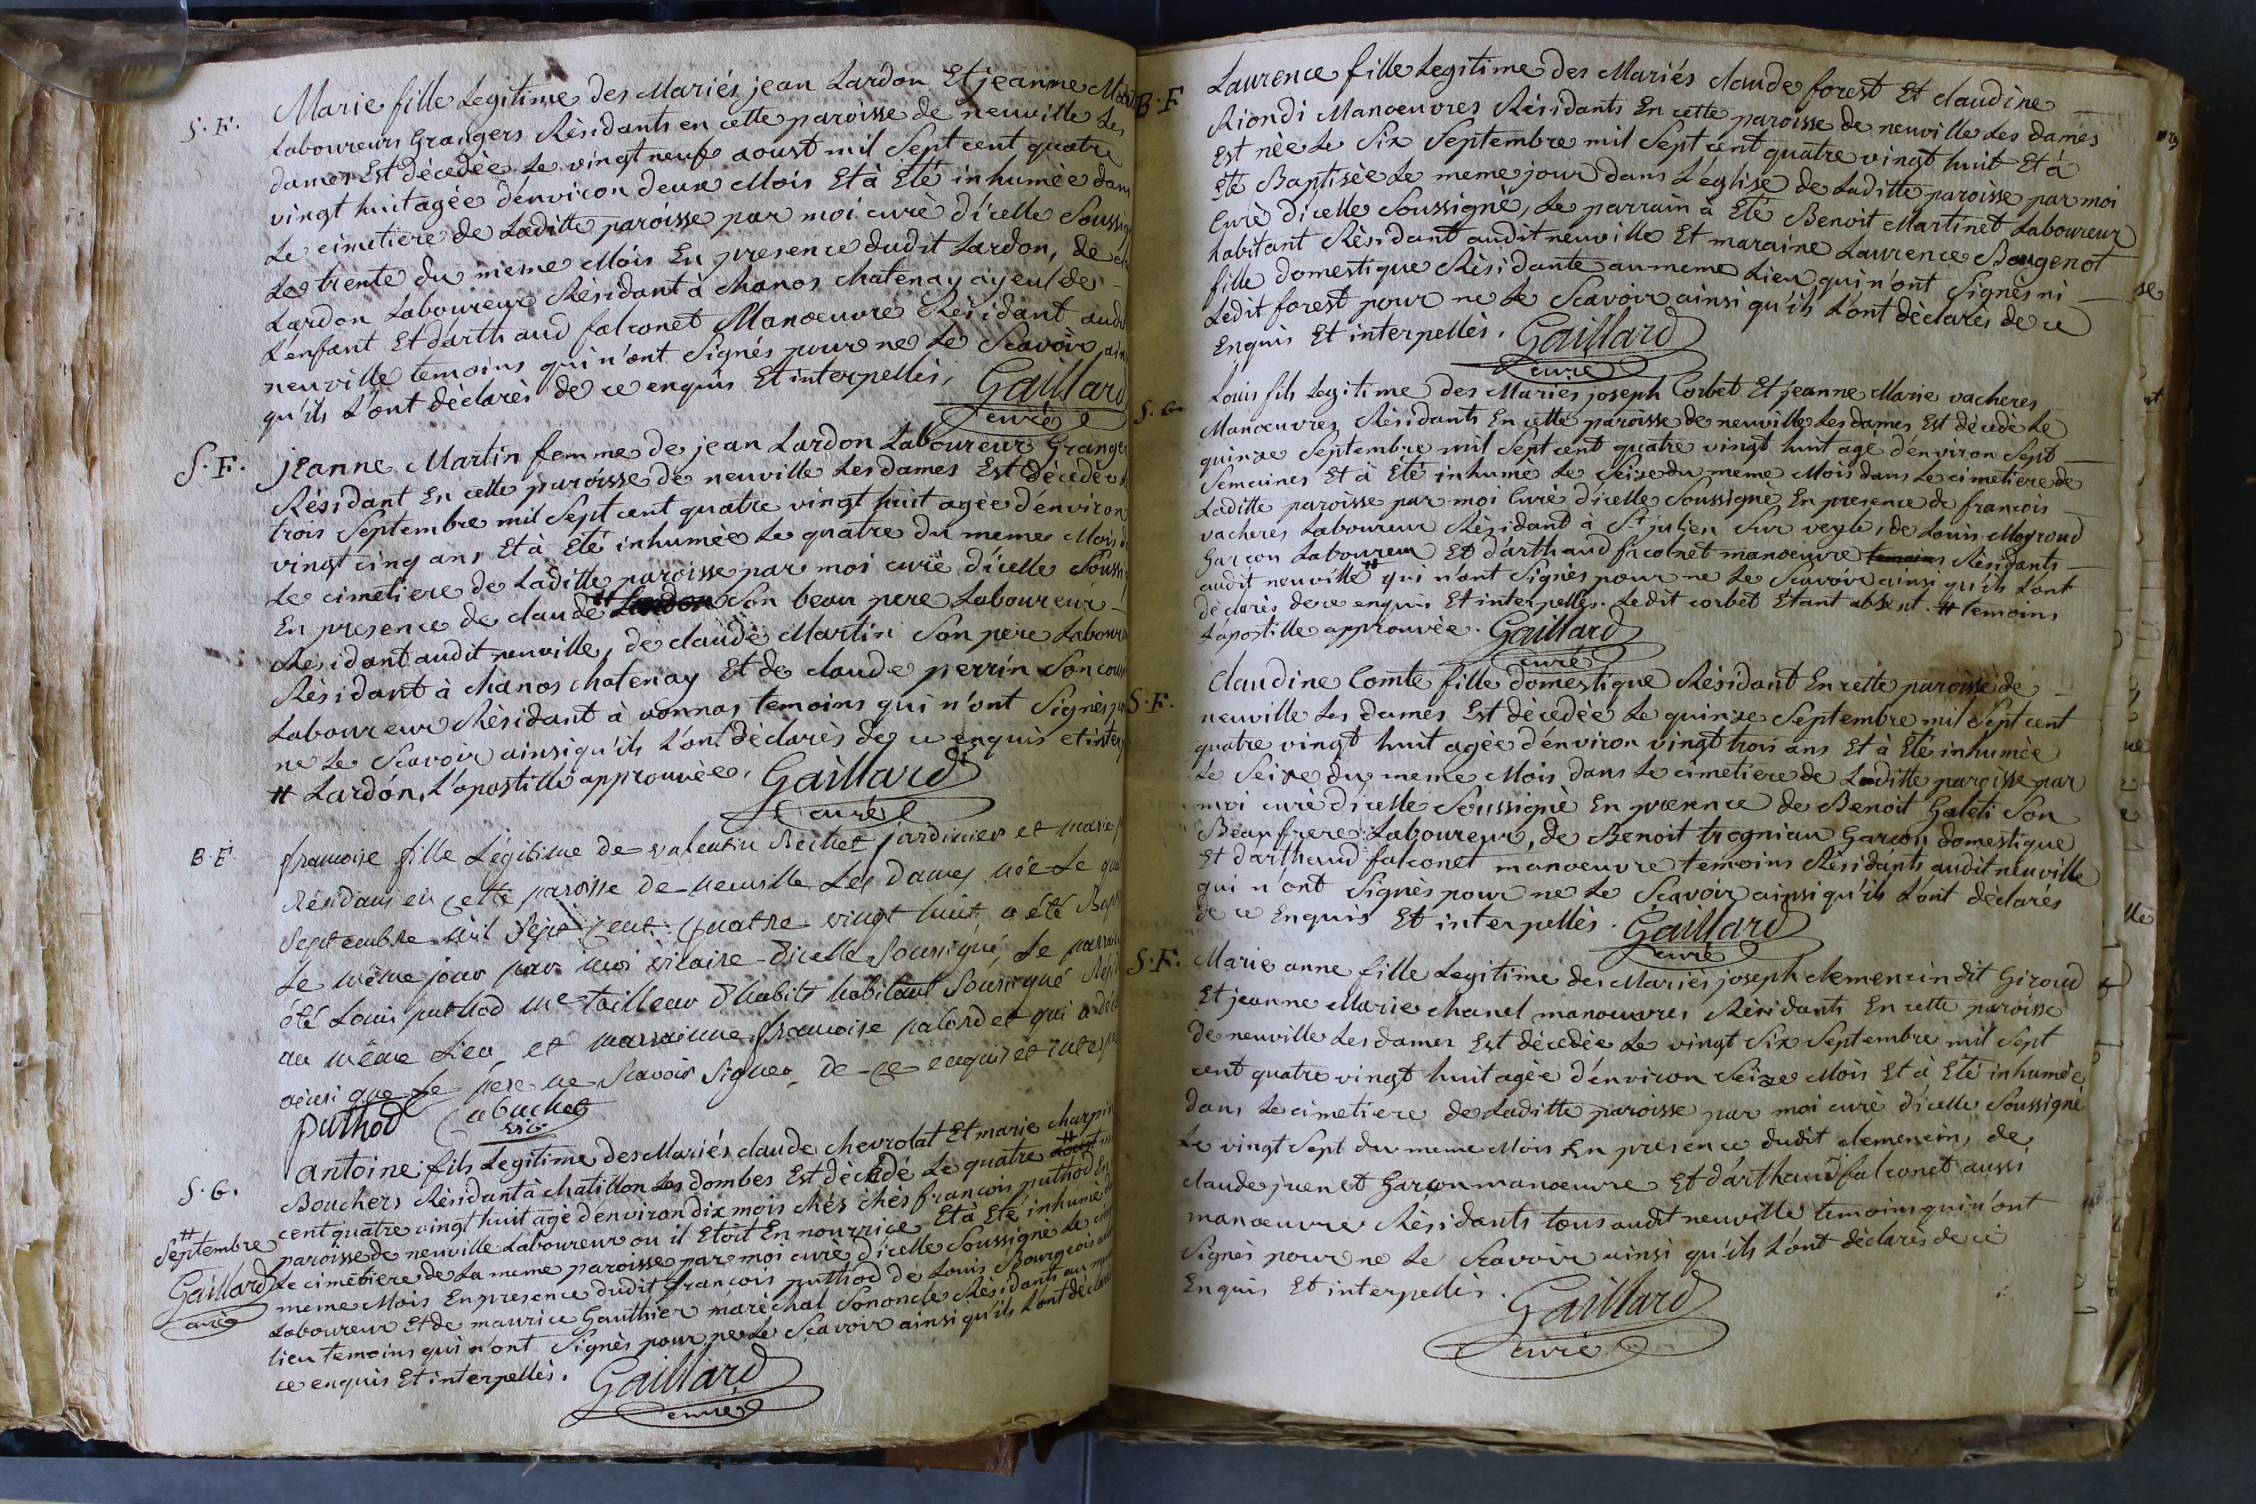 S. F.
Marie fille Legitime des Mariés jean Lardon Et jeanne
Laboureurs Grangers Résidants en cette paroisse de neuville Les
dames Est décédée Le vingt neuf aoust mil Sept cent quatre
vingt huit agée d'environ deux Mois Et à Eté inhumée dans
Le cimetiere de Laditte paroisse par moi curé d'icelle
Le trente du meme Mois En presence dudit Lardon, de
Lardon Laboureur Résidant à chanos chatenay ayeul de
L'enfant Et d'arthaud falconet Manoeuvre Résidant
neuville temoins qui n'ont Signés pour ne Le Scavoir
qu'ils L'ont déclarés de ce enquis Et interpellés.
Gaillard
curé
S. F.
jeanne Martin femme de jean Lardon Laboureur
Résidant En cette paroisse de neuville Les dames Est décédée
trois Septembre mil Sept cent quatre vingt huit agée d'environ
vingt cinq ans Et à Eté inhumée Le quatre du meme Mois
Le cimetiere de Laditte paroisse par moi curé d'icelle
En presence de claude # Lardon Son beau pere Laboureur
Résidant audit neuville, de claude Martin Son pere
Résidant à chanos chatenay Et de claude perrin Son
Laboureur Résidant à vonnas temoins qui n'ont Signés
ne Le Scavoir ainsi qu'ils L'ont déclarés de ce enquis
# Lardon, L'apostille approuvée.
Gaillard
curé
B. F.
francoise fille Légitime de valentin Rechet jardinier et marie
Résidans en cette paroisse de neuville Les dames née Le
Septembre mil Sept cent quatre vingt huit a été
Le même jour par moi vicaire dicelle Soussigné, Le
été Louis puthod me tailleur d'habits habitant Soussigné
au même Lieu, et marraine francoise palordet qui a
ainsi que Le pere ne Scavoir Signer, de ce enquis et
puthod
Cabuchet
vic.
S. G.
antoine fils Legitime des Mariés claude chevrolat Et marie
Bouchers Résidant à chatillon Les dombes Est décédé Le quatre #
cent quatre vingt huit agé d'environ dix mois chés chés francois puthod
paroisse de neuville Laboureur ou il Etoit En nourrice Et à Eté inhumé
Le cimetiere de La meme paroisse par moi curé d'icelle Soussigné Le
meme Mois En presence dudit francois puthod de Louis Bourgeois
Laboureur Et de maurice Gauthier maréchal Son oncle Résidants au
lieu temoins qui n'ont Signés pour ne Le Scavoir ainsi qu'ils L'ont
ce enquis Et interpellés.
# Septembre
Gaillard
curé
Gaillard
curé
B. F.
Laurence fille Legitime des Mariés claude forest Et claudine
Riondi Manoeuvres Résidants En cette paroisse de neuville Les dames
Est née Le Six Septembre mil Sept cent quatre vingt huit Et à
Eté Baptisée Le meme jour dans L'église de Laditte paroisse par moi
Curé d'icelle Soussigné, Le parrain à Eté Benoit Martinet Laboureur
habitant Résidant audit neuville Et maraine Laurence Bougenot
fille domestique Résidante au meme Lieu qui n'ont Signés ni
Ledit forest pour ne Le Scavoir ainsi qu'ils L'ont déclarés de ce
Enquis Et interpellés.
Gaillard
curé
S. G.
Louis fils Legitime des Mariés joseph Corbet Et jeanne Marie vacheres
Manoeuvres Résidants En cette paroisse de neuville Les dames Est décédé Le
quinze Septembre mil Sept cent quatre vingt huit agé d'environ Sept
Semaines Et à Eté inhumé Le Seize du meme Mois dans Le cimetiere de
Laditte paroisse par moi Curé d'icelle Soussigné En presence de francois
vacheres Laboureur Résidant à St julien Sur veyle, de Louis
Garcon Laboureur Et d'arthaud facolnet manoeuvre temoins Résidants
audit neuville # qui n'ont Signés pour ne Le Scavoir ainsi qu'ils L'ont
déclarés de ce enquis Et interpellés. Ledit corbet Etant absent. # temoins
L'apostille approuvée.
Gaillard
curé
S. F.
Claudine Comte fille domestique Résidant En cette paroisse de
neuville Les dames Est décédée Le quinze Septembre mil Sept cent
quatre vingt huit agée d'environ vingt trois ans Et à Eté inhumée
Le Seize du meme Mois dans Le cimetiere de Laditte paroisse par
moi curé d'icelle Soussigné En presence de Benoit Galeti Son
Beau frere Laboureur, de Benoit trogniau Garcon domestique
Et d'arthaud falconet manoeuvre temoins Résidants audit neuville
qui n'ont Signés pour ne Le Scavoir ainsi qu'ils L'ont déclarés
de ce Enquis Et interpellés.
Gaillard
curé
S. F.
Marie anne fille Legitime des Mariés joseph clemencin dit Giroud
Et jeanne Marie chanel manoeuvres Résidants En cette paroisse
de neuville Les dames Est décédée Le vingt Six Septembre mil Sept
cent quatre vingt huit agée d'environ Seize Mois Et à Eté inhumée
dans Le cimetiere de Laditte paroisse par moi curé d'icelle Soussigné
Le vingt Sept du meme Mois En presence dudit clemencin, de
claude juenet Garcon manoeuvre Et d'arthaud falconet aussi
manoeuvre Résidants tous audit neuville temoins qui n'ont
Signés pour ne Le Scavoir ainsi qu'ils L'ont déclarés de ce
Enquis Et interpellés.
Gaillard
curé